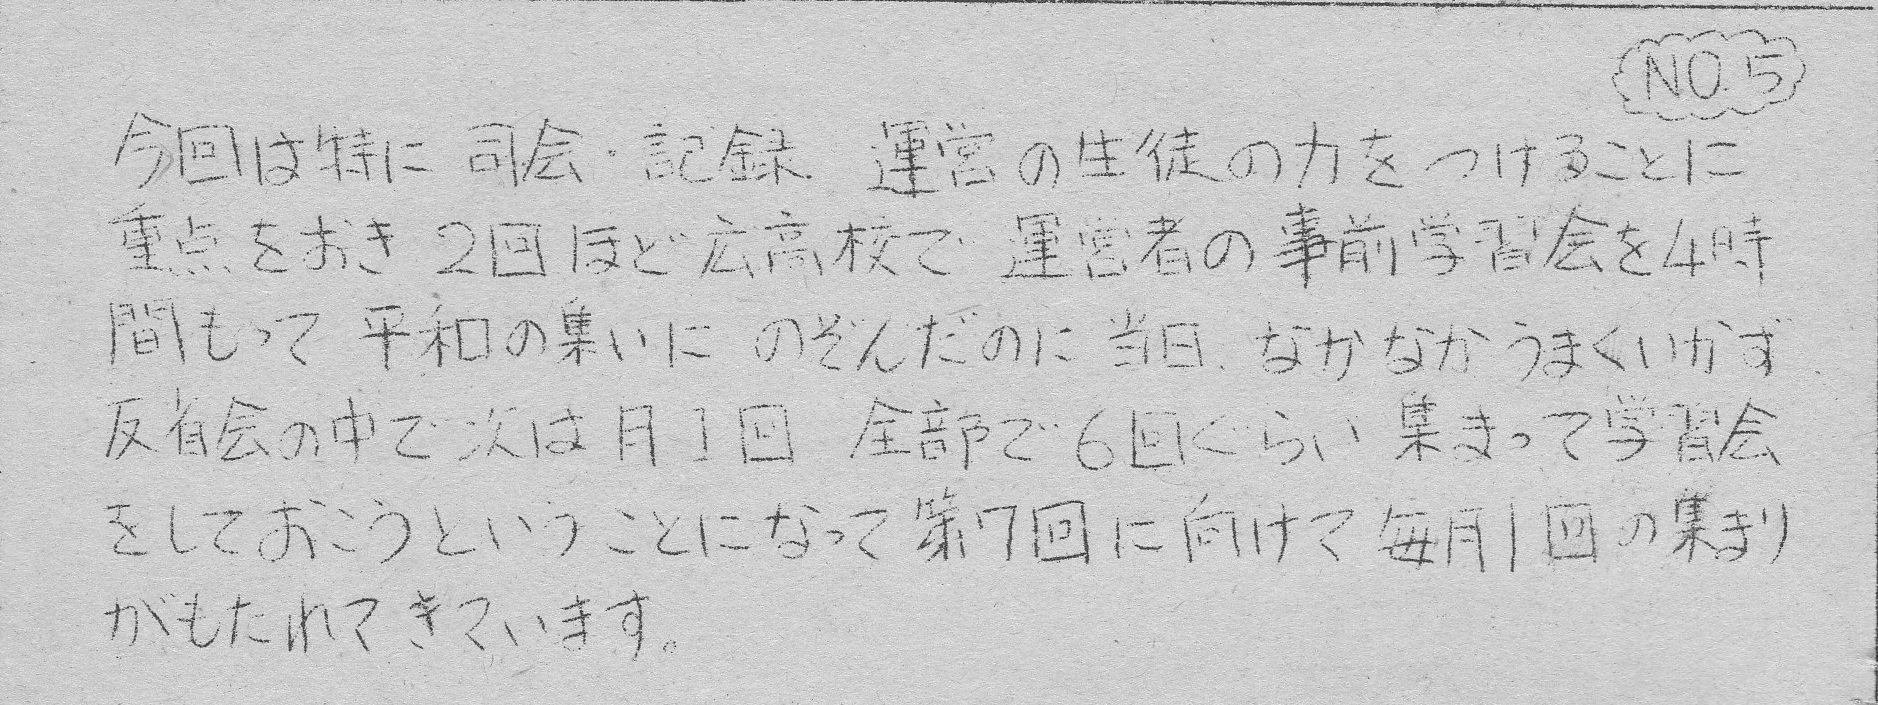 NO.5
今回は特に 司会・記録 運営の生徒の力をつけることに
重点をおき 2回ほど広高校で 運営者の事前学習会を4時
間もって 平和の集いに のぞんだのに当日、なかなかうまくいかず
反省会の中で次は月1回 全部で6回ぐらい 集まって学習会
をしておこうということになって第7回に向けて毎月1回の集まり
がもたれてきています。